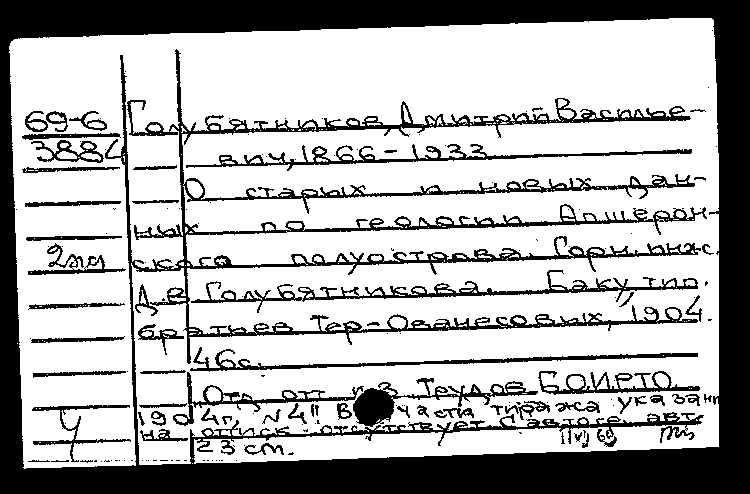 69-6 Голубятников, Дмитрий Василье-
3884 вич, 1866-1933
О старых и новых дан-
ных по геологии Апшерон-
2экз ского полуострова. Горн. инж.
Д.В. Голубятникова. Баку, тип.
братьев Тер-Ованесовых, 1904.
46 с.
Отд. отт. из "Трудов БОИРТО
1904г., №4". В части тиража указан
на отписк отсутствует. С автогр. авт.
Ч 23 см. 69